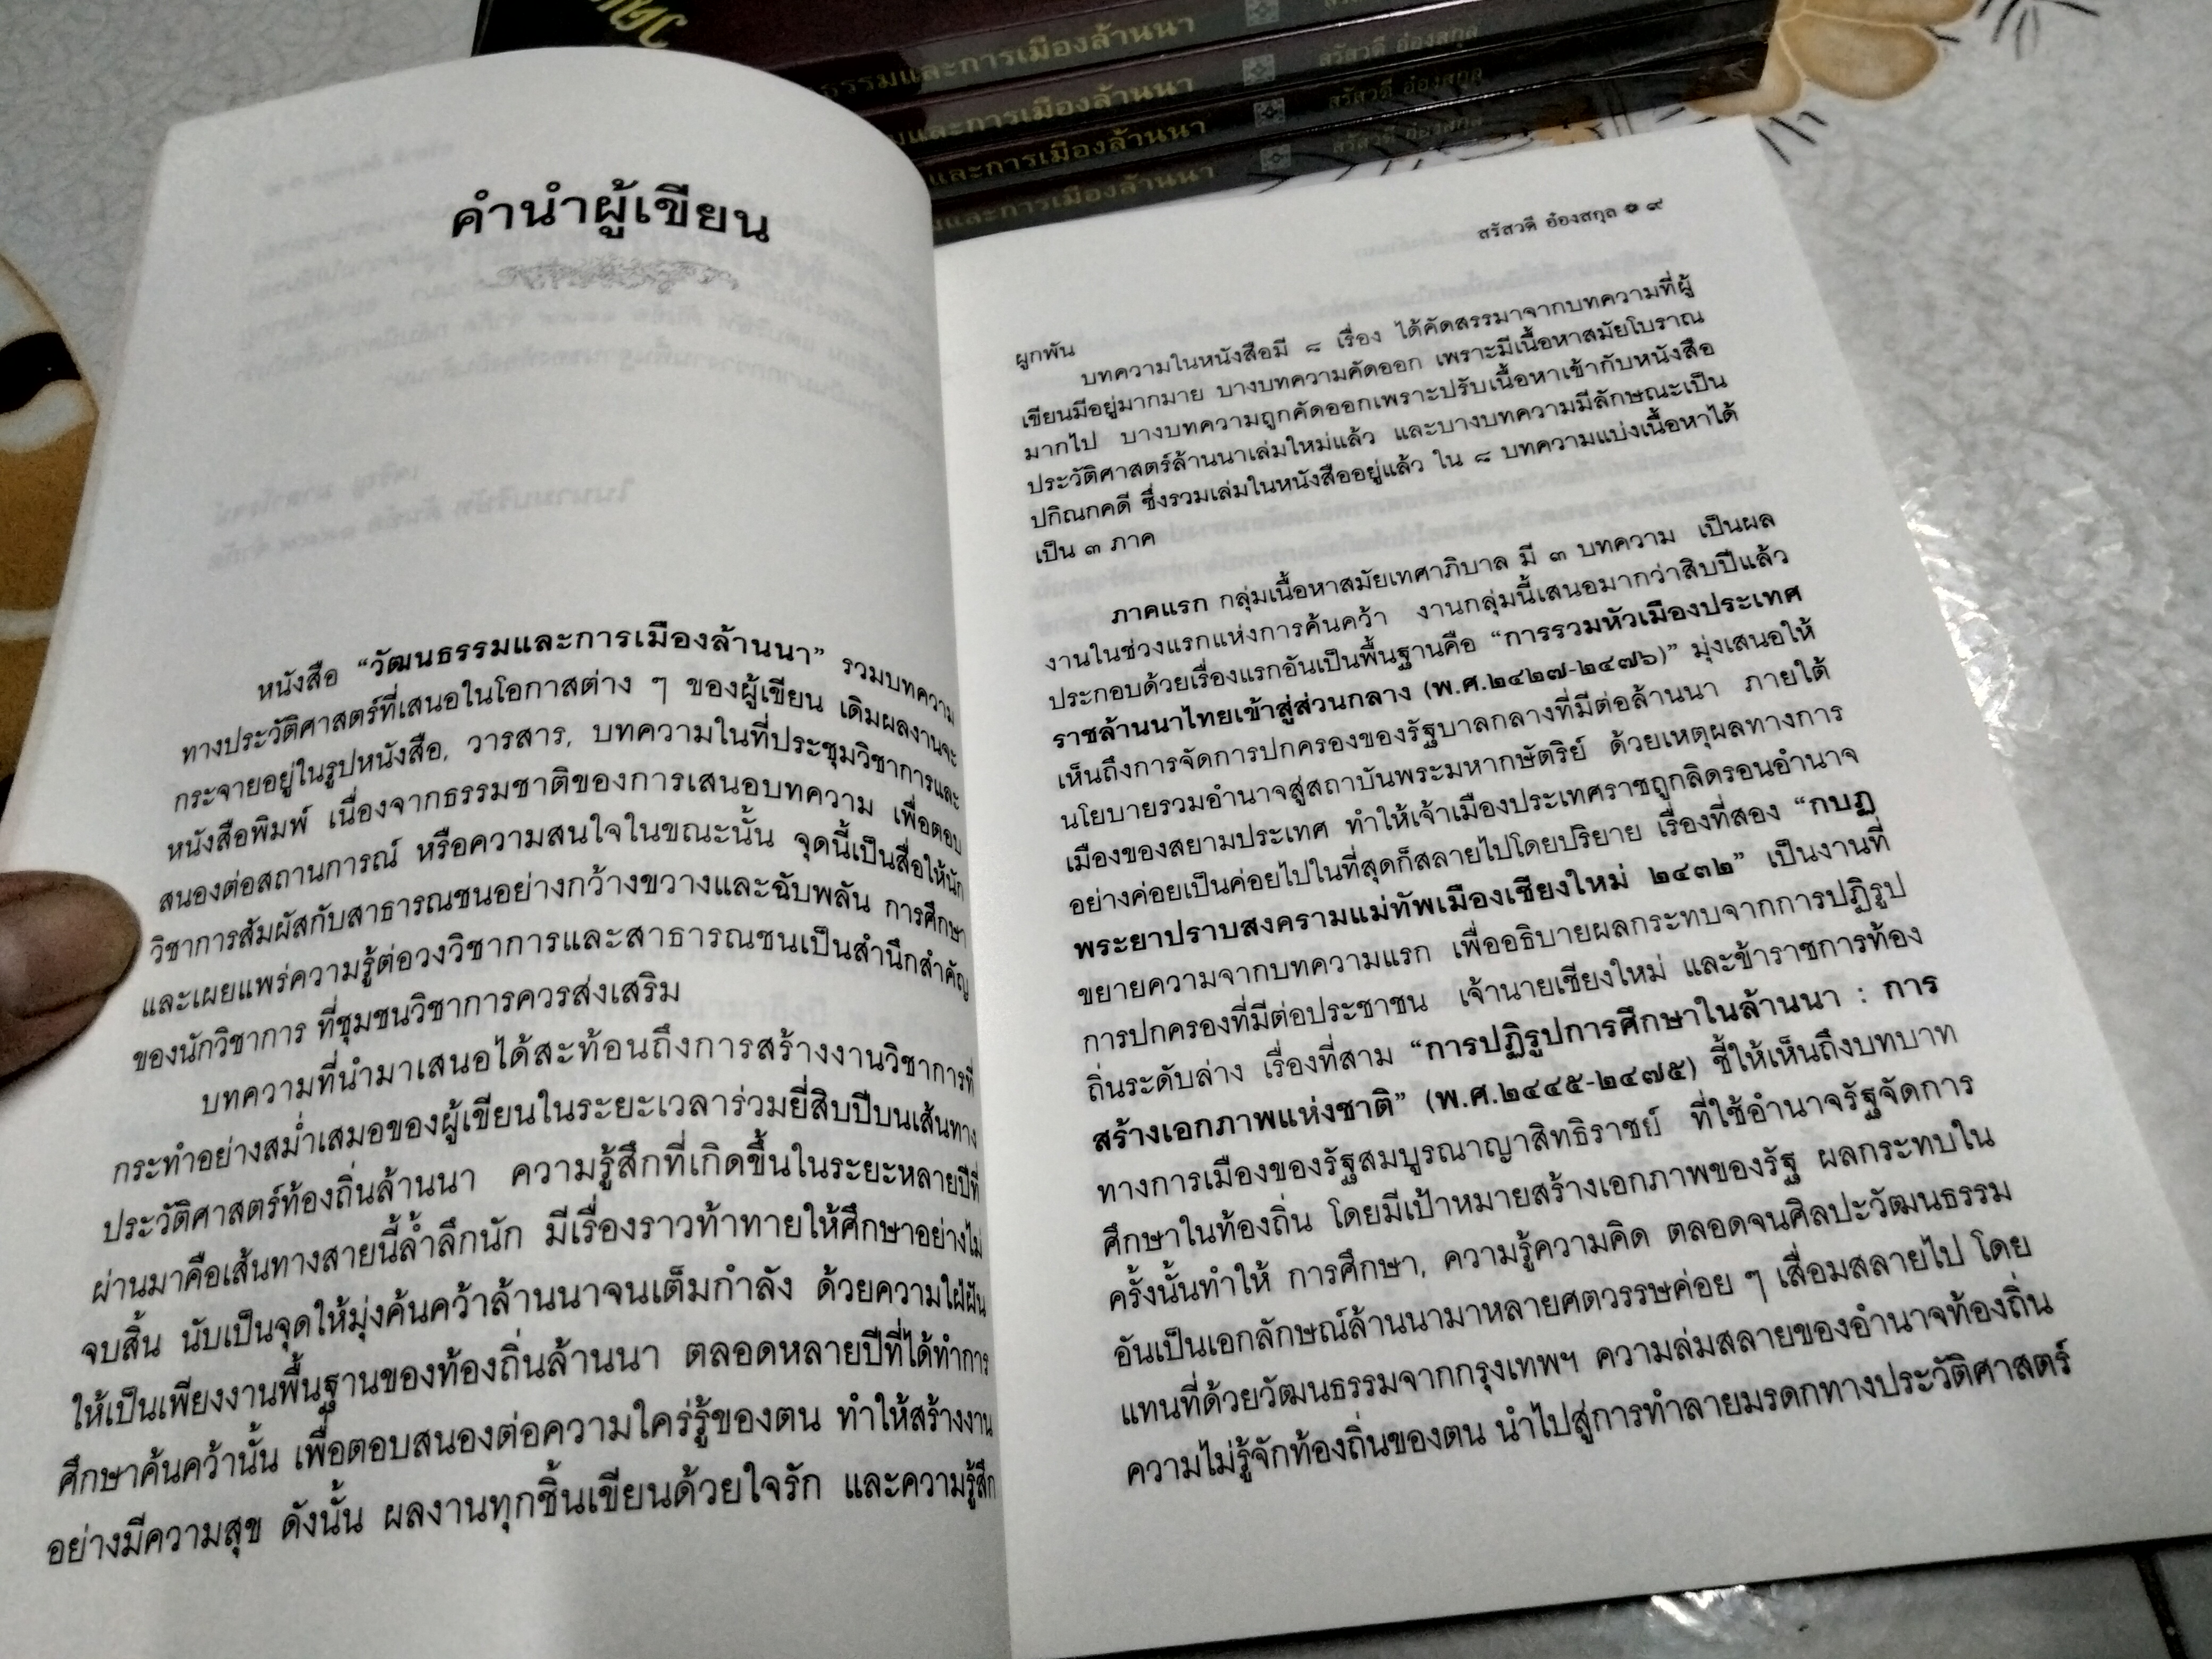 ธรรมและการเมืองล้านนา
และการเมืองล้านนา สรัสวดี อ๋องสกุล
และการเมืองล้านนา สรัสวดี อ๋องสกุล
และการเมืองล้านนา สรัสวดี อ๋องสกุล
คำนำผู้เขียน
หนังสือ “วัฒนธรรมและการเมืองล้านนา” รวมบทความ
ทางประวัติศาสตร์ที่เสนอในโอกาสต่าง ๆ ของผู้เขียน เดิมผลงานจะ
กระจายอยู่ในรูปหนังสือ, วารสาร, บทความในที่ประชุมวิชาการและ
หนังสือพิมพ์ เนื่องจากธรรมชาติของการเสนอบทความ เพื่อตอบ
สนองต่อสถานการณ์ หรือความสนใจในขณะนั้น จุดนี้เป็นสื่อให้นัก
วิชาการสัมผัสกับสาธารณชนอย่างกว้างขวางและฉับพลัน การศึกษา
และเผยแพร่ความรู้ต่อวงวิชาการและสาธารณชนเป็นสำนึกสำคัญ
ของนักวิชาการ ที่ชุมชนวิชาการควรส่งเสริม
บทความที่นำมาเสนอได้สะท้อนถึงการสร้างงานวิชาการที่
กระทำอย่างสม่ำเสมอของผู้เขียนในระยะเวลาร่วมยี่สิบปีบนเส้นทาง
ประวัติศาสตร์ท้องถิ่นล้านนา ความรู้สึกที่เกิดขึ้นในระยะหลายปีที่
ผ่านมาคือเส้นทางสายนี้ล้ำลึกนัก มีเรื่องราวท้าทายให้ศึกษาอย่างไม่
จบสิ้น นับเป็นจุดให้มุ่งค้นคว้าล้านนาจนเต็มกำลัง ด้วยความใฝ่ฝัน
ให้เป็นเพียงงานพื้นฐานของท้องถิ่นล้านนา ตลอดหลายปีที่ได้ทำการ
ศึกษาค้นคว้านั้น เพื่อตอบสนองต่อความใคร่รู้ของตน ทำให้สร้างงาน
อย่างมีความสุข ดังนั้น ผลงานทุกชิ้นเขียนด้วยใจรัก และความรู้สึก
สรัสวดี อ๋องสกุล ๙
ผูกพัน
บทความในหนังสือมี ๘ เรื่อง ได้คัดสรรมาจากบทความที่ผู้
เขียนมีอยู่มากมาย บางบทความคัดออก เพราะมีเนื้อหาสมัยโบราณ
มากไป บางบทความถูกคัดออกเพราะปรับเนื้อหาเข้ากับหนังสือ
ประวัติศาสตร์ล้านนาเล่มใหม่แล้ว และบางบทความมีลักษณะเป็น
ปกิณกคดี ซึ่งรวมเล่มในหนังสืออยู่แล้ว ใน ๘ บทความแบ่งเนื้อหาได้
เป็น ๓ ภาค
ภาคแรก กลุ่มเนื้อหาสมัยเทศาภิบาล มี ๓ บทความ เป็นผล
งานในช่วงแรกแห่งการค้นคว้า งานกลุ่มนี้เสนอมากว่าสิบปีแล้ว
ประกอบด้วยเรื่องแรกอันเป็นพื้นฐานคือ “การรวมหัวเมืองประเทศ
ราชล้านนาไทยเข้าสู่ส่วนกลาง (พ.ศ.๒๔๒๗-๒๔๗๖)” มุ่งเสนอให้
เห็นถึงการจัดการปกครองของรัฐบาลกลางที่มีต่อล้านนา ภายใต้
นโยบายรวมอำนาจสู่สถาบันพระมหากษัตริย์ ด้วยเหตุผลทางการ
เมืองของสยามประเทศ ทำให้เจ้าเมืองประเทศราชถูกลิดรอนอำนาจ
อย่างค่อยเป็นค่อยไปในที่สุดก็สลายไปโดยปริยาย เรื่องที่สอง “กบฏ
พระยาปราบสงครามแม่ทัพเมืองเชียงใหม่ ๒๔๓๒” เป็นงานที่
ขยายความจากบทความแรก เพื่ออธิบายผลกระทบจากการปฏิรูป
การปกครองที่มีต่อประชาชน เจ้านายเชียงใหม่ และข้าราชการท้อง
ถิ่นระดับล่าง เรื่องที่สาม “การปฏิรูปการศึกษาในล้านนา : การ
สร้างเอกภาพแห่งชาติ” (พ.ศ.๒๔๔๕-๒๔๗๕) ชี้ให้เห็นถึงบทบาท
ทางการเมืองของรัฐสมบูรณาญาสิทธิราชย์ ที่ใช้อำนาจรัฐจัดการ
ศึกษาในท้องถิ่น โดยมีเป้าหมายสร้างเอกภาพของรัฐ ผลกระทบใน
ครั้งนั้นทำให้ การศึกษา, ความรู้ความคิด ตลอดจนศิลปะวัฒนธรรม
อันเป็นเอกลักษณ์ล้านนามาหลายศตวรรษค่อย ๆ เสื่อมสลายไป โดย
แทนที่ด้วยวัฒนธรรมจากกรุงเทพฯ ความล่มสลายของอำนาจท้องถิ่น
ความไม่รู้จักท้องถิ่นของตน นำไปสู่การทำลายมรดกทางประวัติศาสตร์